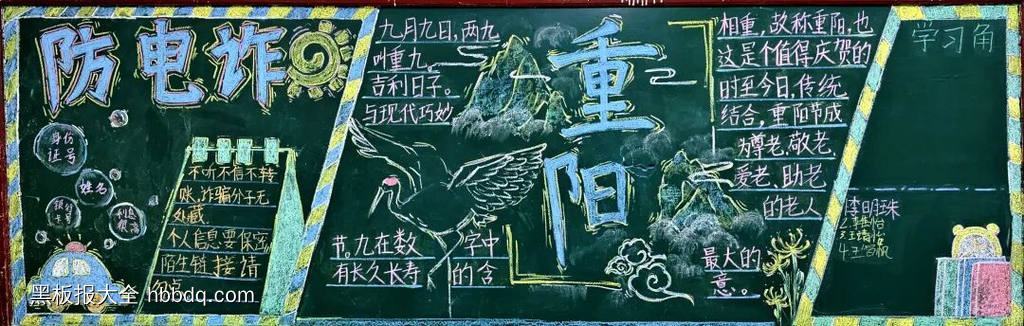 防电诈
身份
证号
姓名
银行
卡号
不听不信不转
账,诈骗分子无
处藏
个人信息要保密
陌生链接请
黑板报大全 hbbdq.com
九月九日,两九
叫重九。
吉利日子。
与现代巧妙
重
阳
节。九在数
有长久长寿
字中
的含
相重,故称重阳,也
这是个值得庆贺的
时至今日,传统
结合,重阳节成
为尊老、敬老
爱老、助老
的老人
最大的
意。
学习角
李明珠